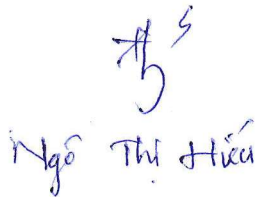 Ngô Thị Hiếu